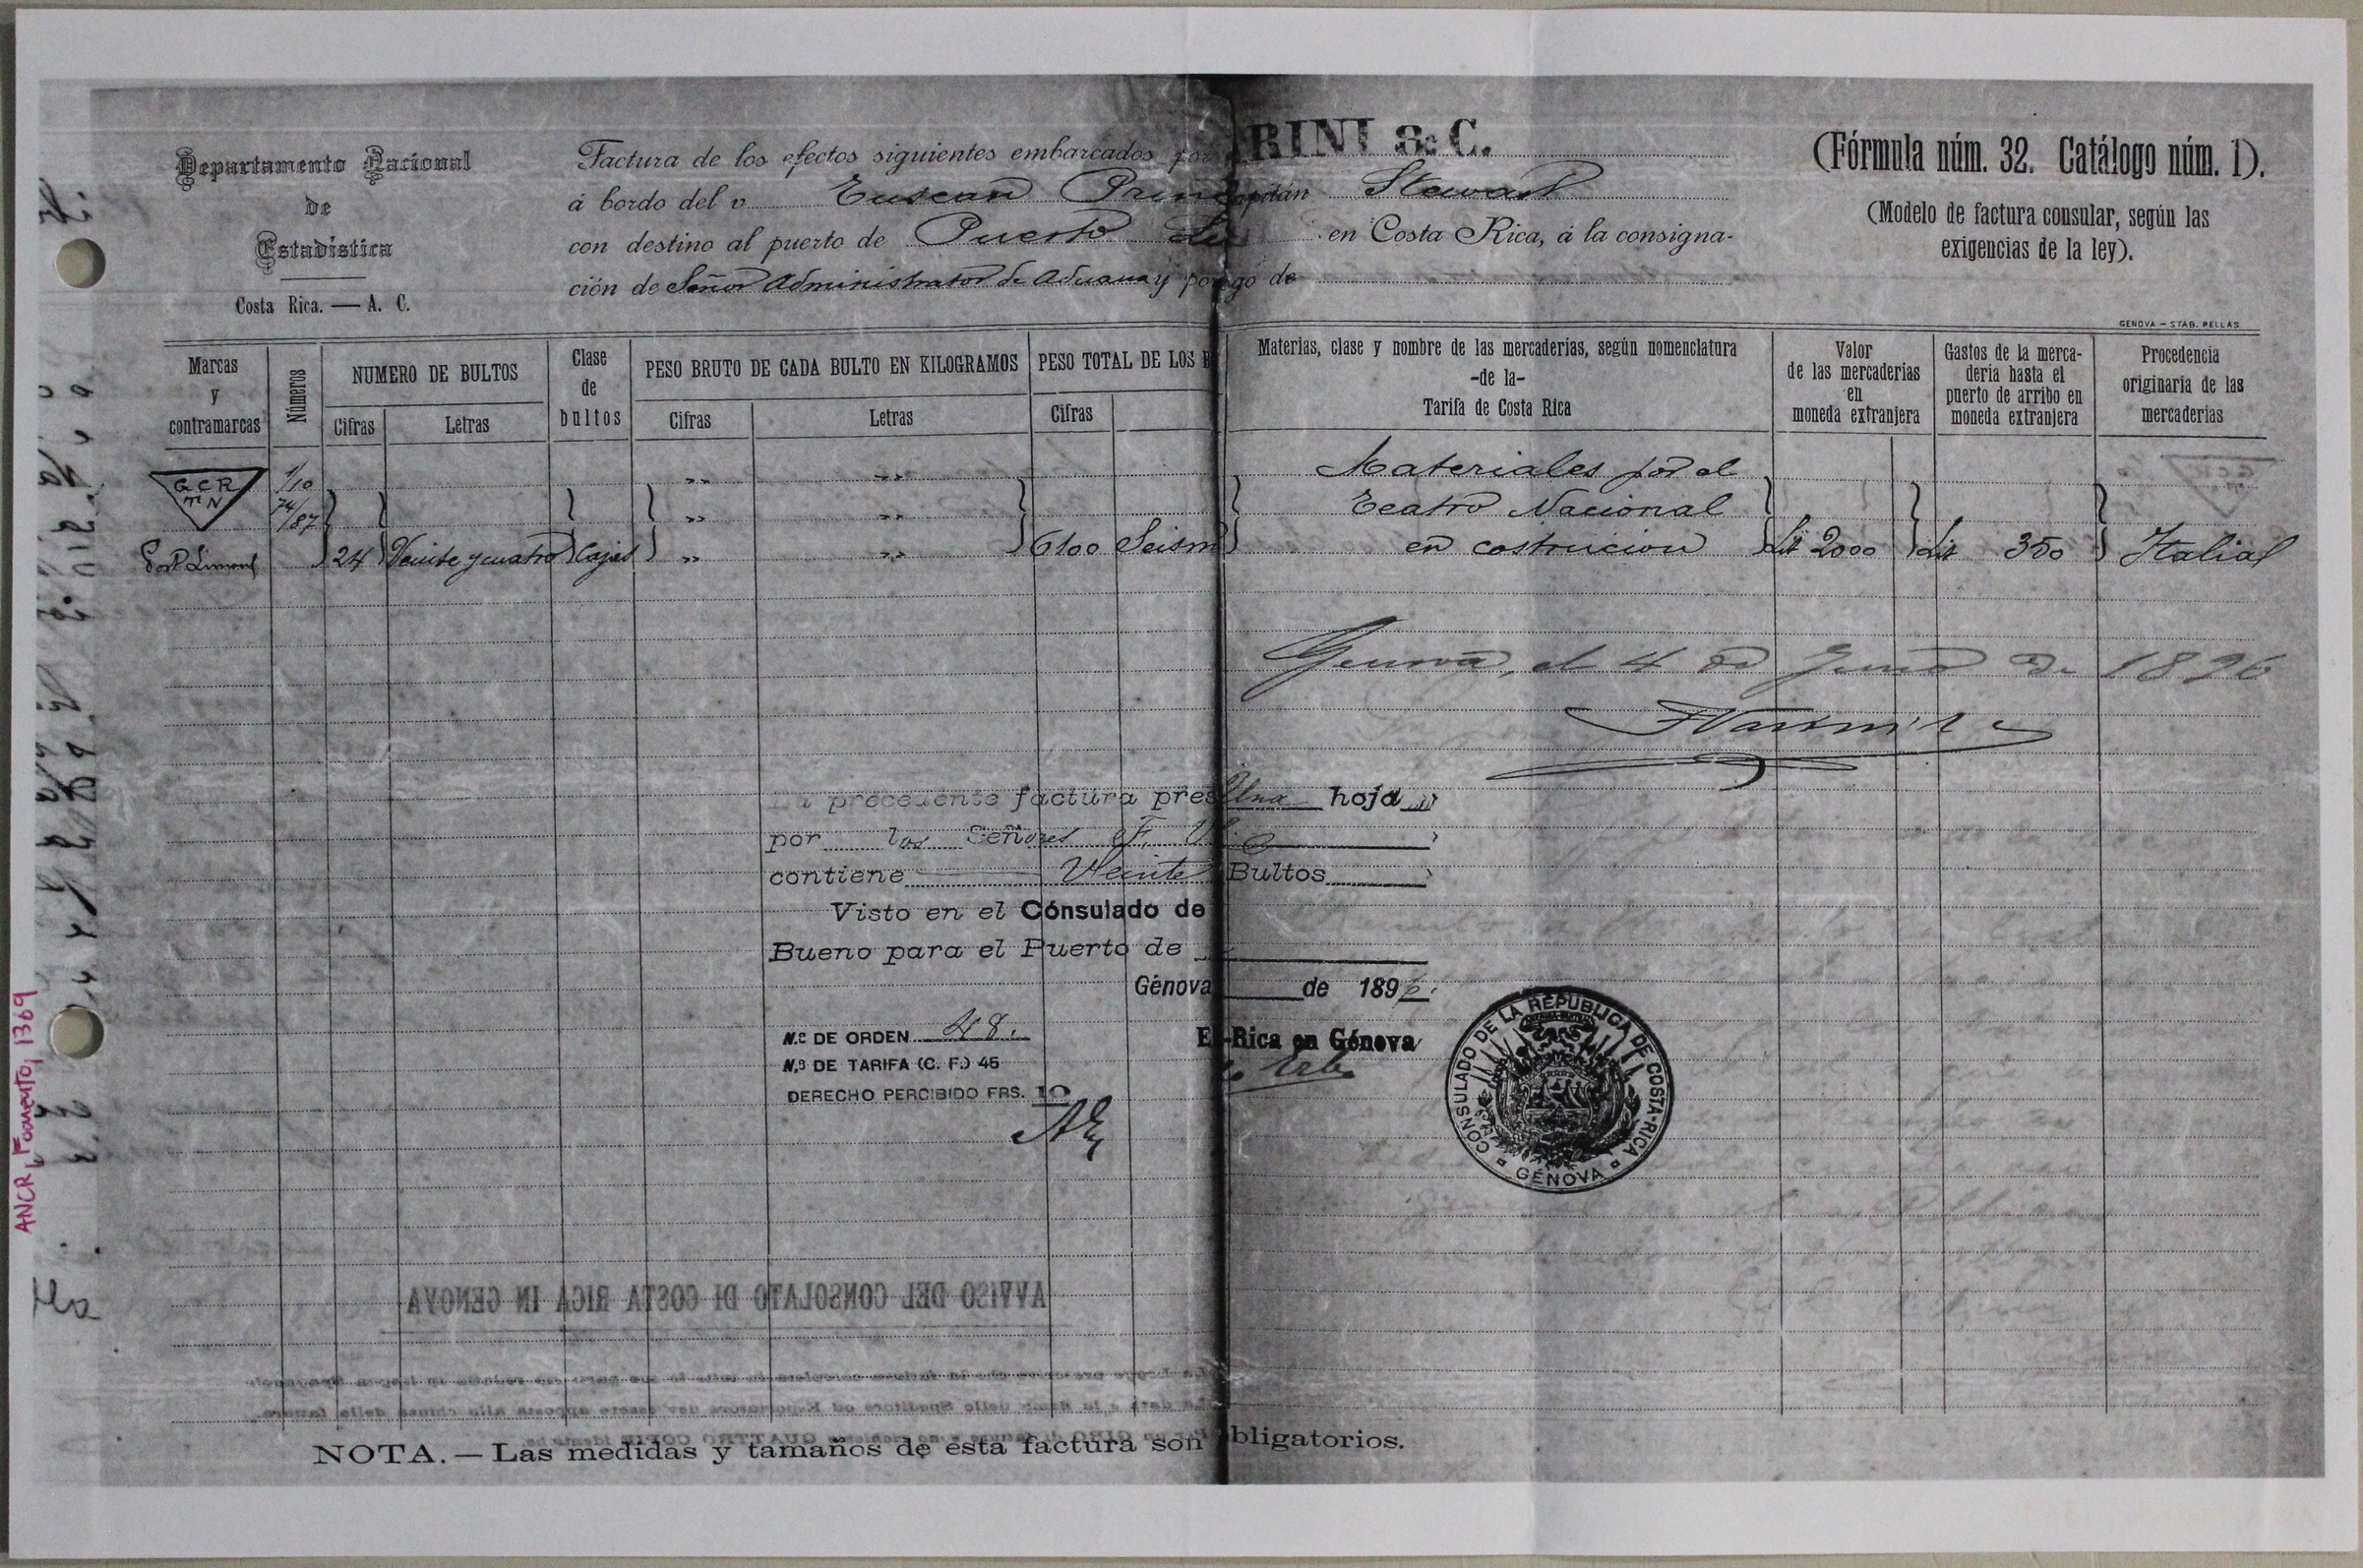 Departamento Nacional
de
Estadística
Costa Rica. — A. C.
Factura de los efectos siguientes embarcados por RINI & C.
á bordo del v Tuscan Prin pitán Stewart
con destino al puerto de Puerto en Costa Rica, á la consigna-
ción de Señor Administrator de Aduana y po go de
(Fórmula núm. 32. Catálogo núm. 1).
(Modelo de factura consular, según las
exigencias de la ley).
GENOVA — STAB. PELLAS
Marcas
y
contramarcas
Números
NUMERO DE BULTOS
Cifras
Letras
Clase
de
bultos
PESO BRUTO DE CADA BULTO EN KILOGRAMOS
Cifras
Letras
PESO TOTAL DE LOS B
Cifras
Materias, clase y nombre de las mercaderias, según nomenclatura
-de la-
Tarifa de Costa Rica
Valor
de las mercaderias
en
moneda extranjera
Gastos de la merca-
deria hasta el
puerto de arribo en
moneda extranjera
Procedencia
originaria de las
mercaderias
G C R 1/10 „ „ Materiales por el
T N 74/87 „ „ Teatro Nacional
Port Limon 24 Veinte y cuatro Cajas „ „ 6100 Seism en costrucion Lit 2000 Lit 350 Italia
Genova, el 4 de Junio de 1896
La precedente factura pres Una hoja
por los Señores F. V C
contiene Veinte Bultos
Visto en el Cónsulado de
Bueno para el Puerto de
Génova de 1896.
N.º DE ORDEN 48.
N.º DE TARIFA (C. F.) 45
DERECHO PERCIBIDO FRS. 10
E -Rica en Génova
CONSULADO DE LA REPUBLICA DE COSTA-RICA
GÉNOVA
AVVISO DEL CONSOLATO DI COSTA RICA IN GENOVA
NOTA. — Las medidas y tamaños de esta factura son bligatorios.
ANCR, Fomento, 1369